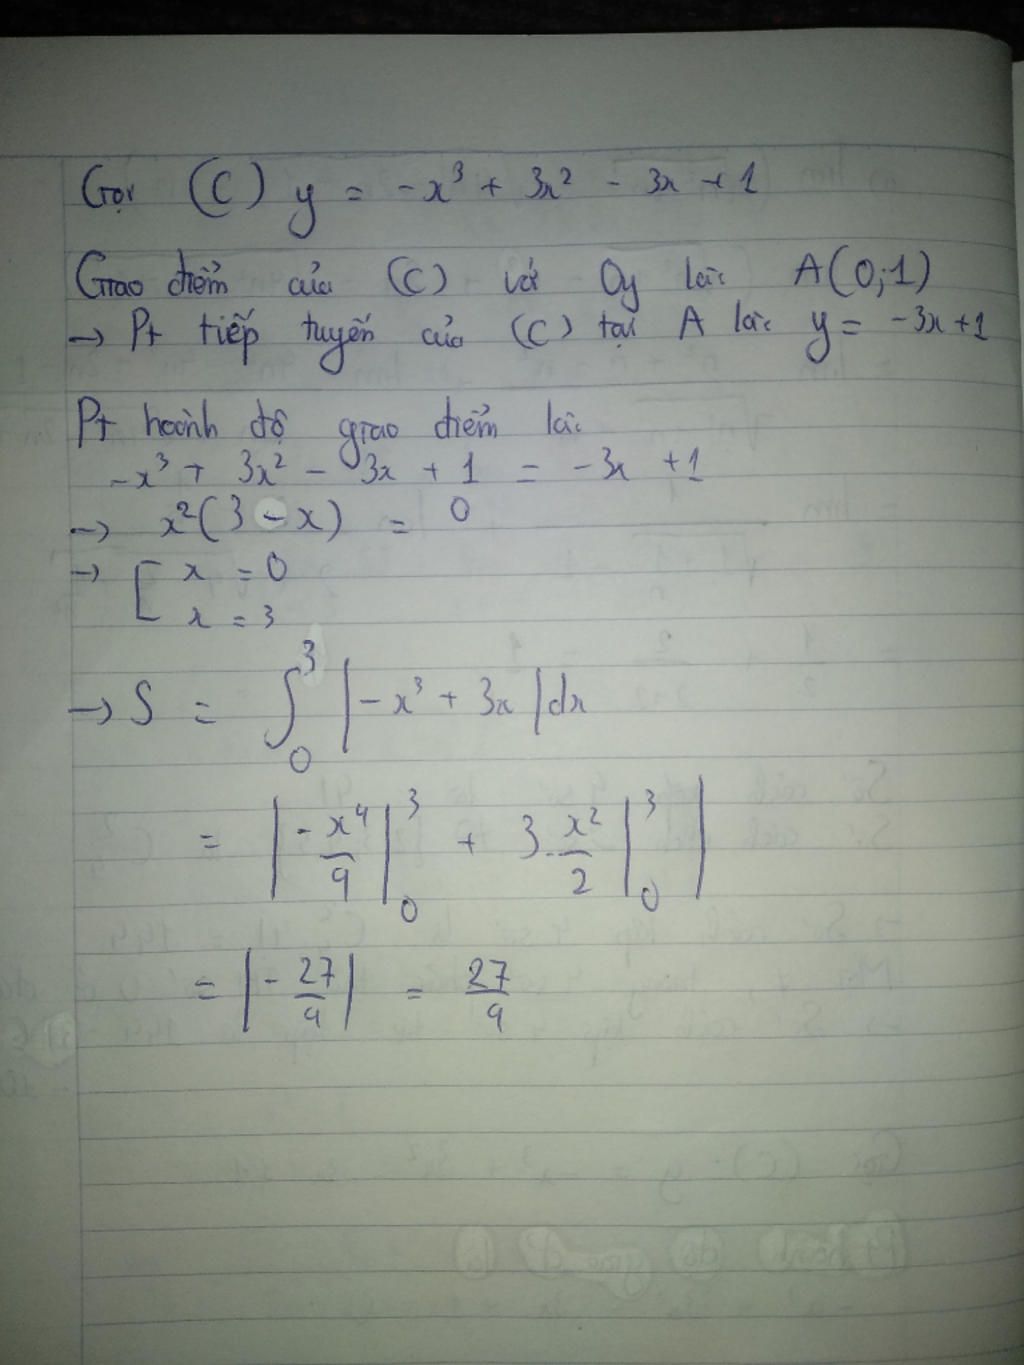 Gọi (C) y = -x³ + 3x² - 3x + 1
Giao điểm của (C) với Oy là: A(0;1)
→ Pt tiếp tuyến của (C) tại A là: y = -3x+1
Pt hoành độ giao điểm là:
-x³ + 3x² - 3x + 1 = -3x +1
→ x²(3 - x) = 0
→ [ x = 0
x = 3
→ S = ∫₀³ |-x³ + 3x| dx
= | -x⁴/4 |₀³ + 3.x²/2 |₀³ |
= |- 27/4| = 27/4